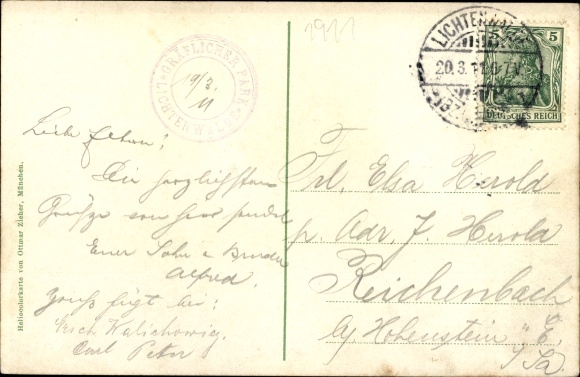 1911
GRÄFLICHER PARK
LICHTENWALDE
19/3.
11
LICHTENWALDE
20.3.11
5 5
DEUTSCHES REICH
Liebe Eltern!
Die herzlichsten
Grüße von hier sendet
Euer Sohn u Bruder
Alfred.
Gruß fügt bei:
Erich Kalichowig.
Carl Peter
Frl. Elsa Herold
p. Adr. J. Herold
Reichenbach
b/ Hohenstein "E.
i/Sa.
Heliocolorkarte von Ottmar Zieher, München.